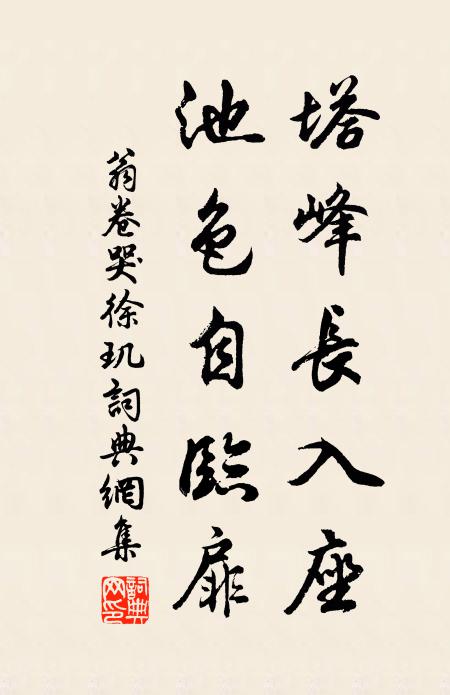 塔峰長入座
池色自臨扉
翁卷哭徐玑詞典網集
詞典網印